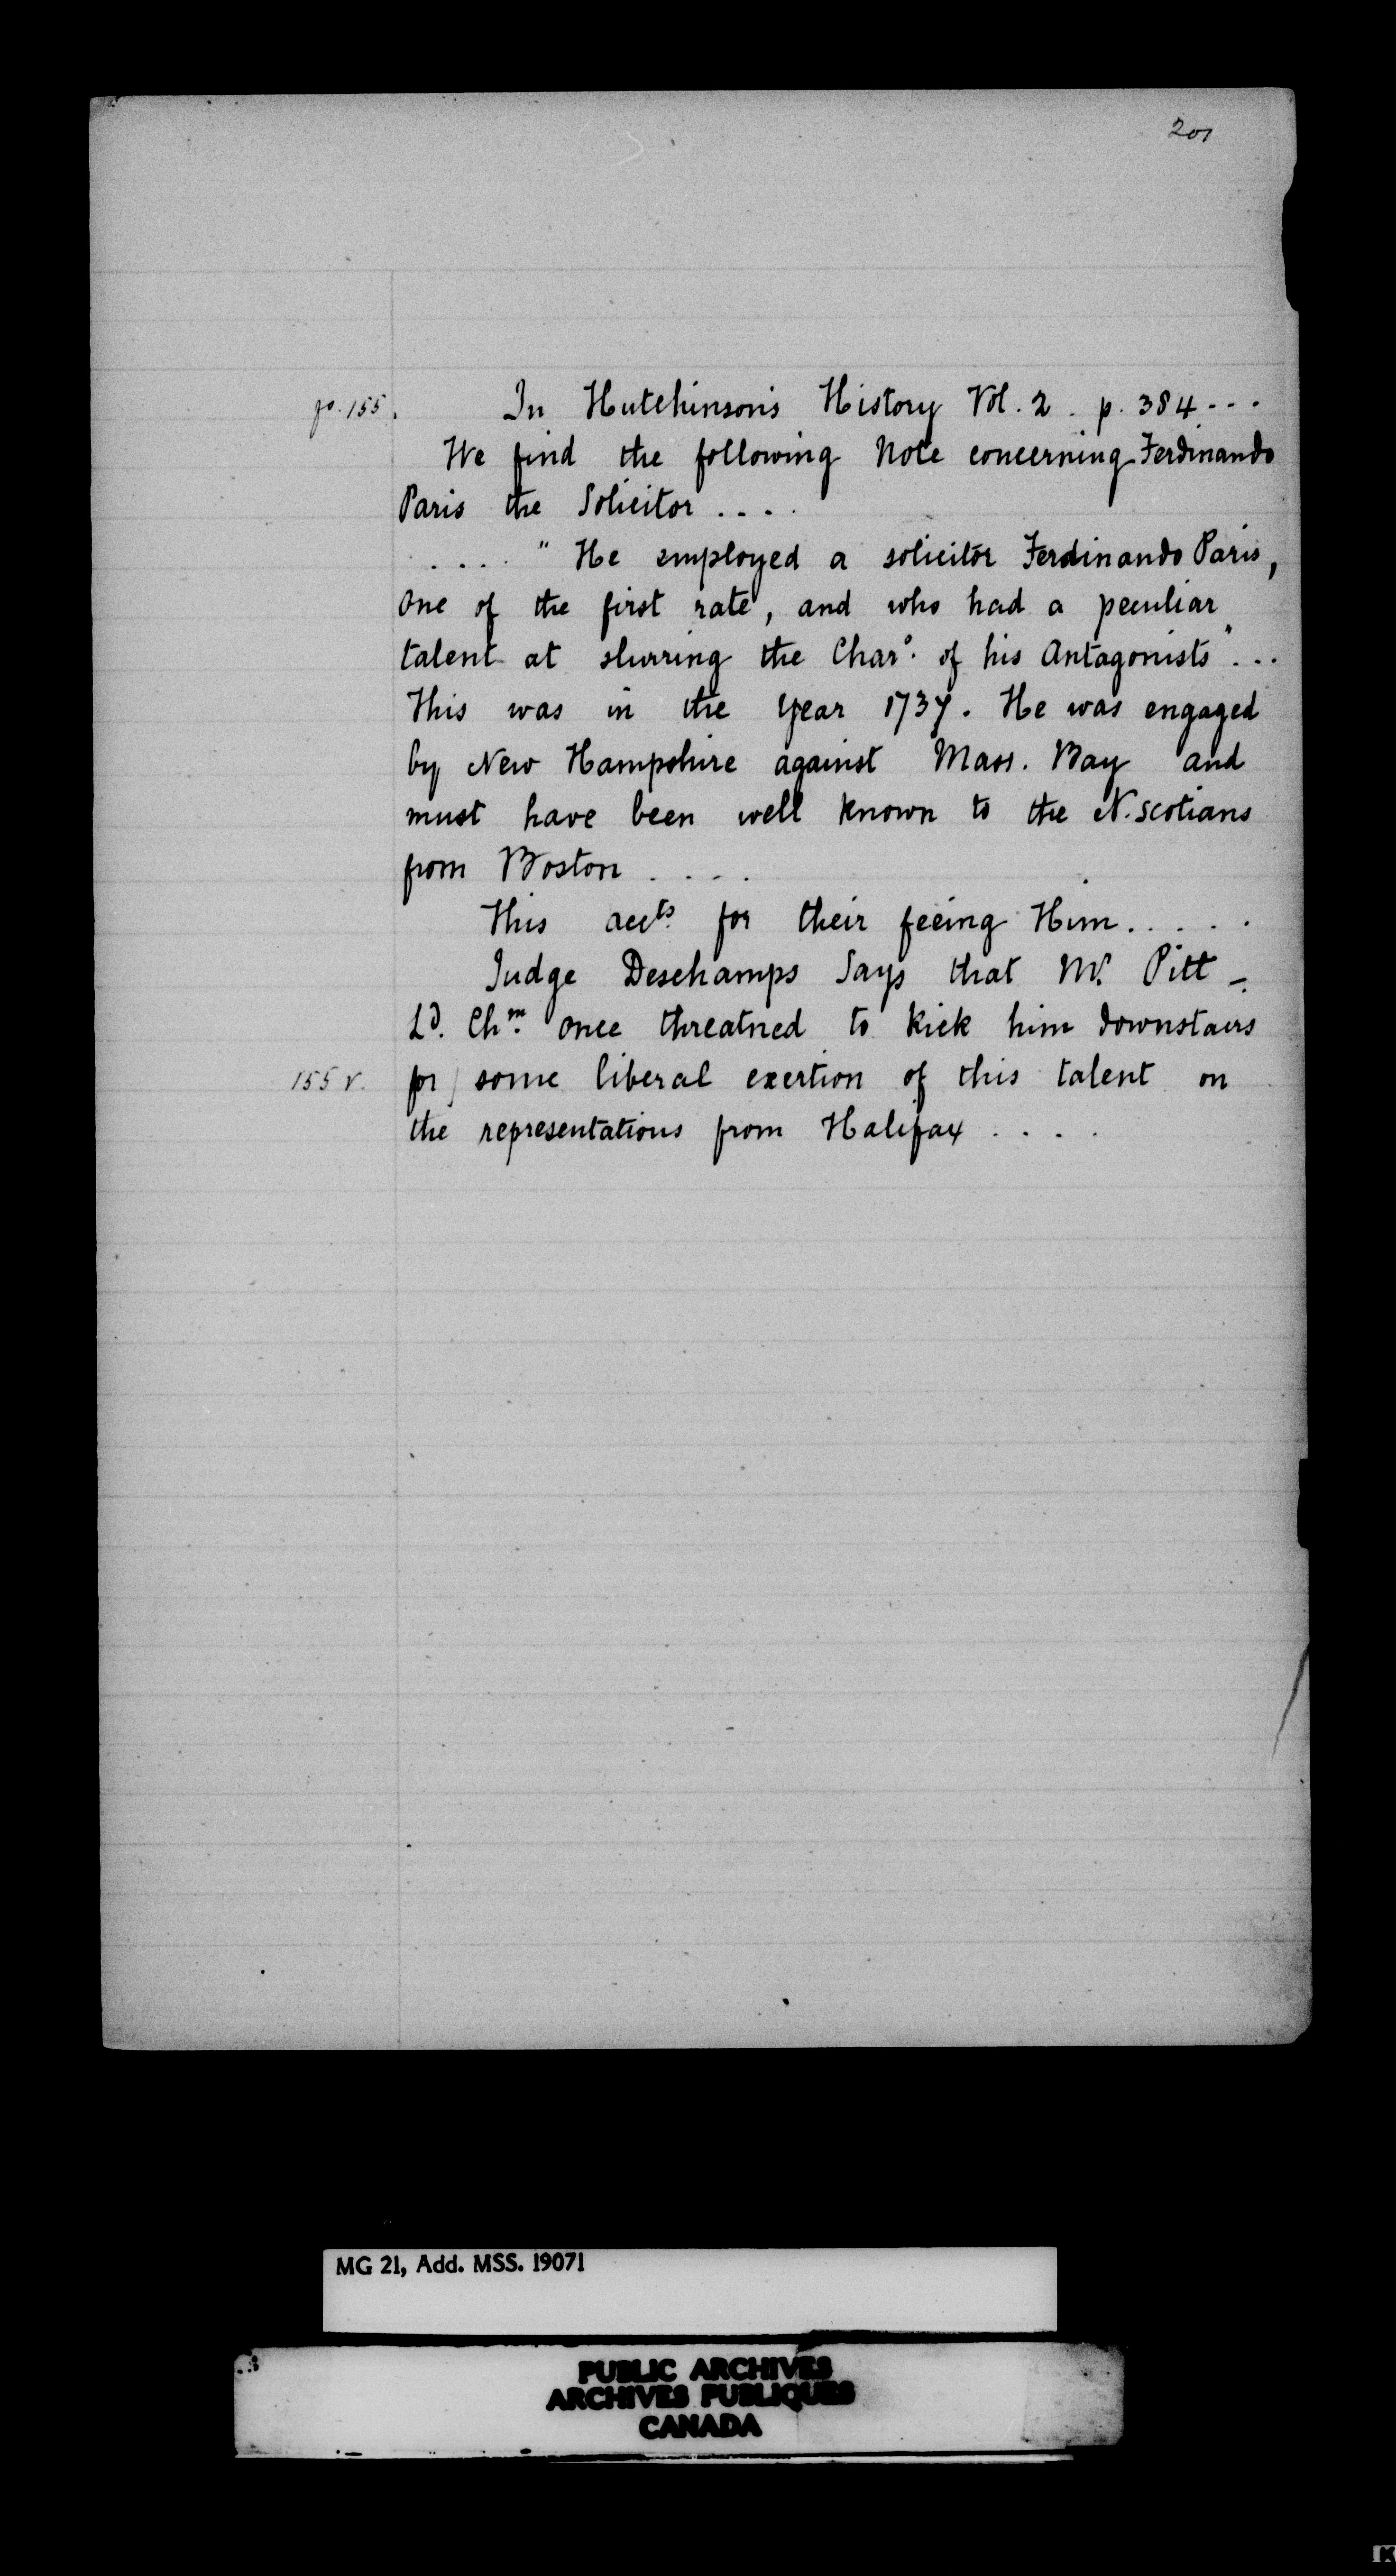 201
fo. 155. In Hutchinson's History Vol. 2. p. 384...
We find the following Note concerning Ferdinando
Paris the Solicitor....
.... " He employed a solicitor Ferdinando Paris,
One of the first rate, and who had a peculiar
talent at slurring the Charº. of his Antagonists"...
This was in the Year 1737. He was engaged
by New Hampshire against Mass. Bay and
must have been well known to the N. Scotians
from Boston....
This accts. for their feeing Him.....
Judge Deschamps Says that Mr. Pitt -
Ld. Chm. once threatned to kick him downstairs
155 v. for / some liberal exertion of this talent on
the representations from Halifax....
MG 21, Add. MSS. 19071
PUBLIC ARCHIVES
ARCHIVES PUBLIQUES
CANADA